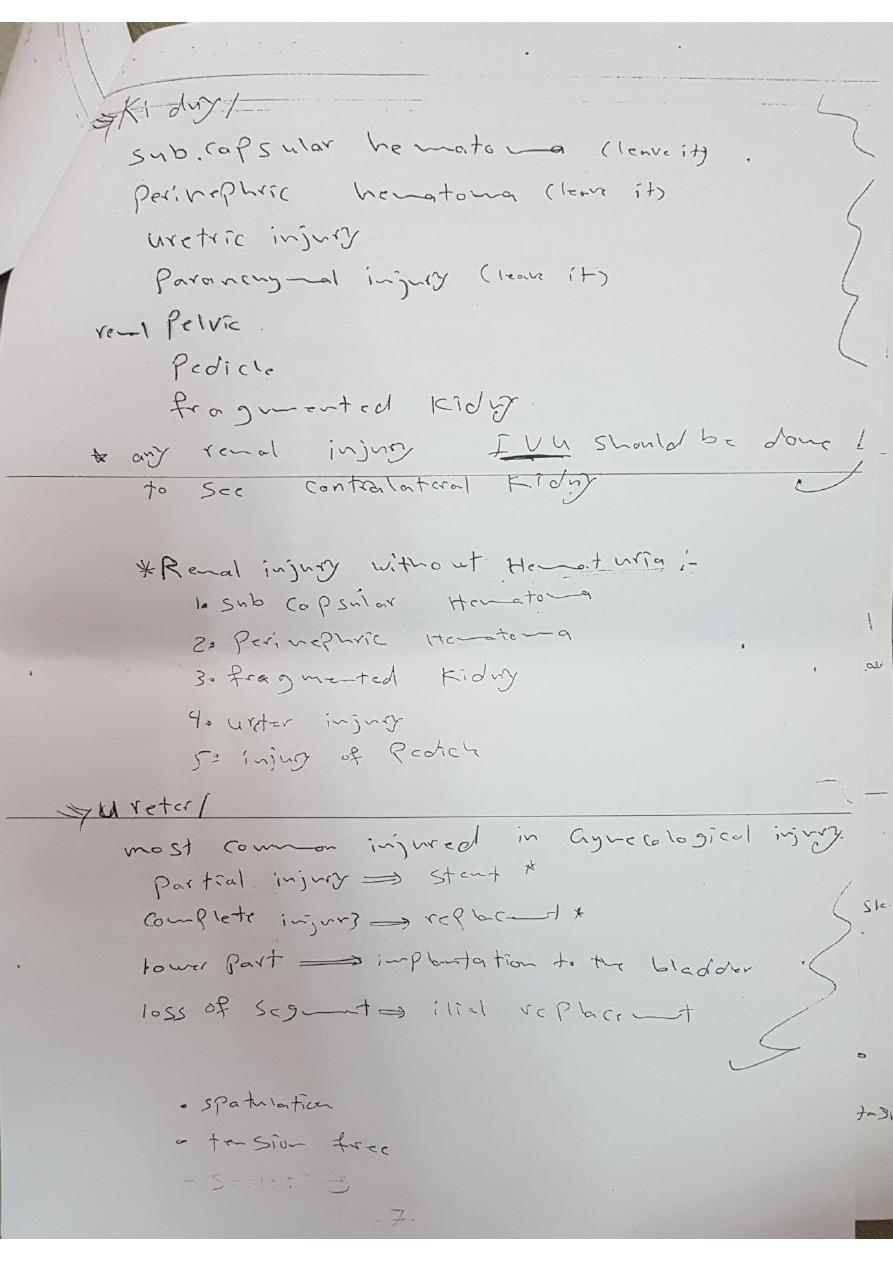 ⇒ Kidny /
sub.capsular hematoma (leave it).
Perinephric hematoma (leave it)
uretric injury
Parancymal injury (leave it)
renal Pelvic.
Pedicle
fragmented Kidny
* any renal injury IVU should be done !
to see contralateral Kidny
* Renal injury without Hematuria :-
1. sub capsular Hematoma
2. Perinephric Hematoma
3. fragmented Kidny
4. urter injury
5= injury of Pedicle
⇒ Ureter /
most common injured in Gynecological injury.
Partial injury ⇒ stent *
Complete injury ⇒ replacement *
lower Part ⇒ implantation to the bladder
loss of segment ⇒ ilial replacement
• spatulation
- tension free
- Stenting
7.